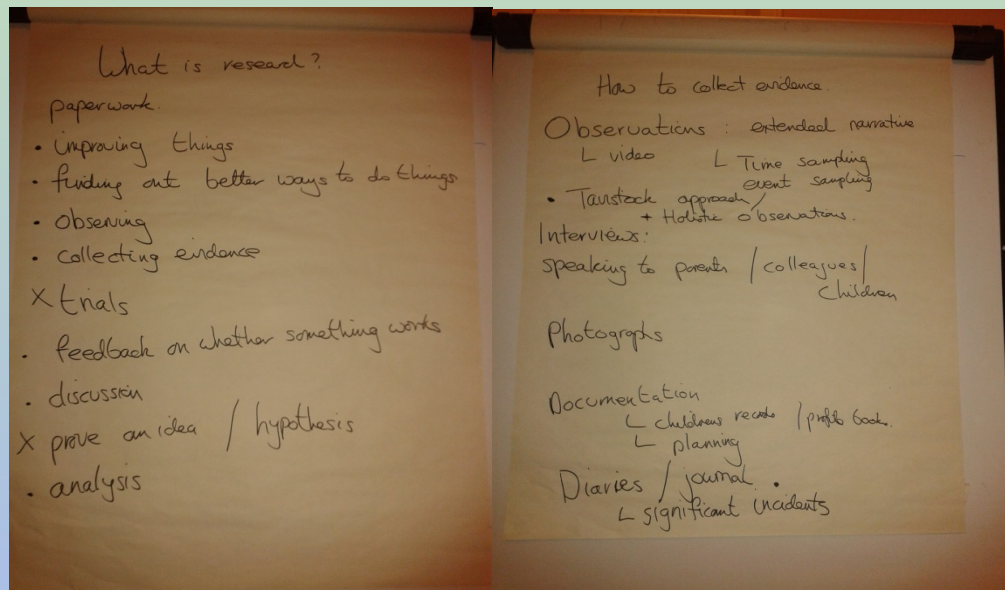 What is research?
paperwork.
• improving things
• finding out better ways to do things
• observing
• collecting evidence
X trials
• feedback on whether something works
• discussion
X prove an idea / hypothesis
• analysis
How to collect evidence.
Observations : extended narrative
L video L Time sampling
event sampling
• Tavistock approach /
+ Holistic observations.
Interviews:
speaking to parents / colleagues /
children
Photographs
Documentation
L childrens records / profile book.
L planning
Diaries / journal •
L significant incidents